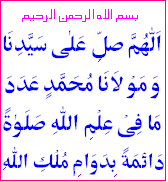 بسم الله الرحمن الرحيم
اَللّٰهُمَّ صَلِّ عَلٰى سَيِّدِنَا
وَمَوْلَانَا مُحَمَّدٍ عَدَدَ
مَا فِيْ عِلْمِ اللّٰهِ صَلَوٰةً
دَائِمَةً بِدَوَامِ مُلْكِ اللّٰهِ